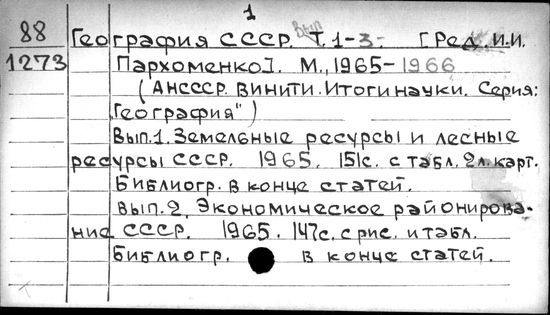 1
88 География СССР. Вып. Т. 1-3- [Ред. И.И.
1273 Пархоменко]. М., 1965-1966
(АНСССР. ВИНИТИ. Итоги науки. Серия:
География")
Вып.1. Земельные ресурсы и лесные
ресурсы СССР. 1965. 151с. с табл. 2л. карт.
Библиогр. в конце статей.
Вып.2. Экономическое районирова-
ние СССР. 1965. 147с. с рис. и табл.
Библиогр. в конце статей.